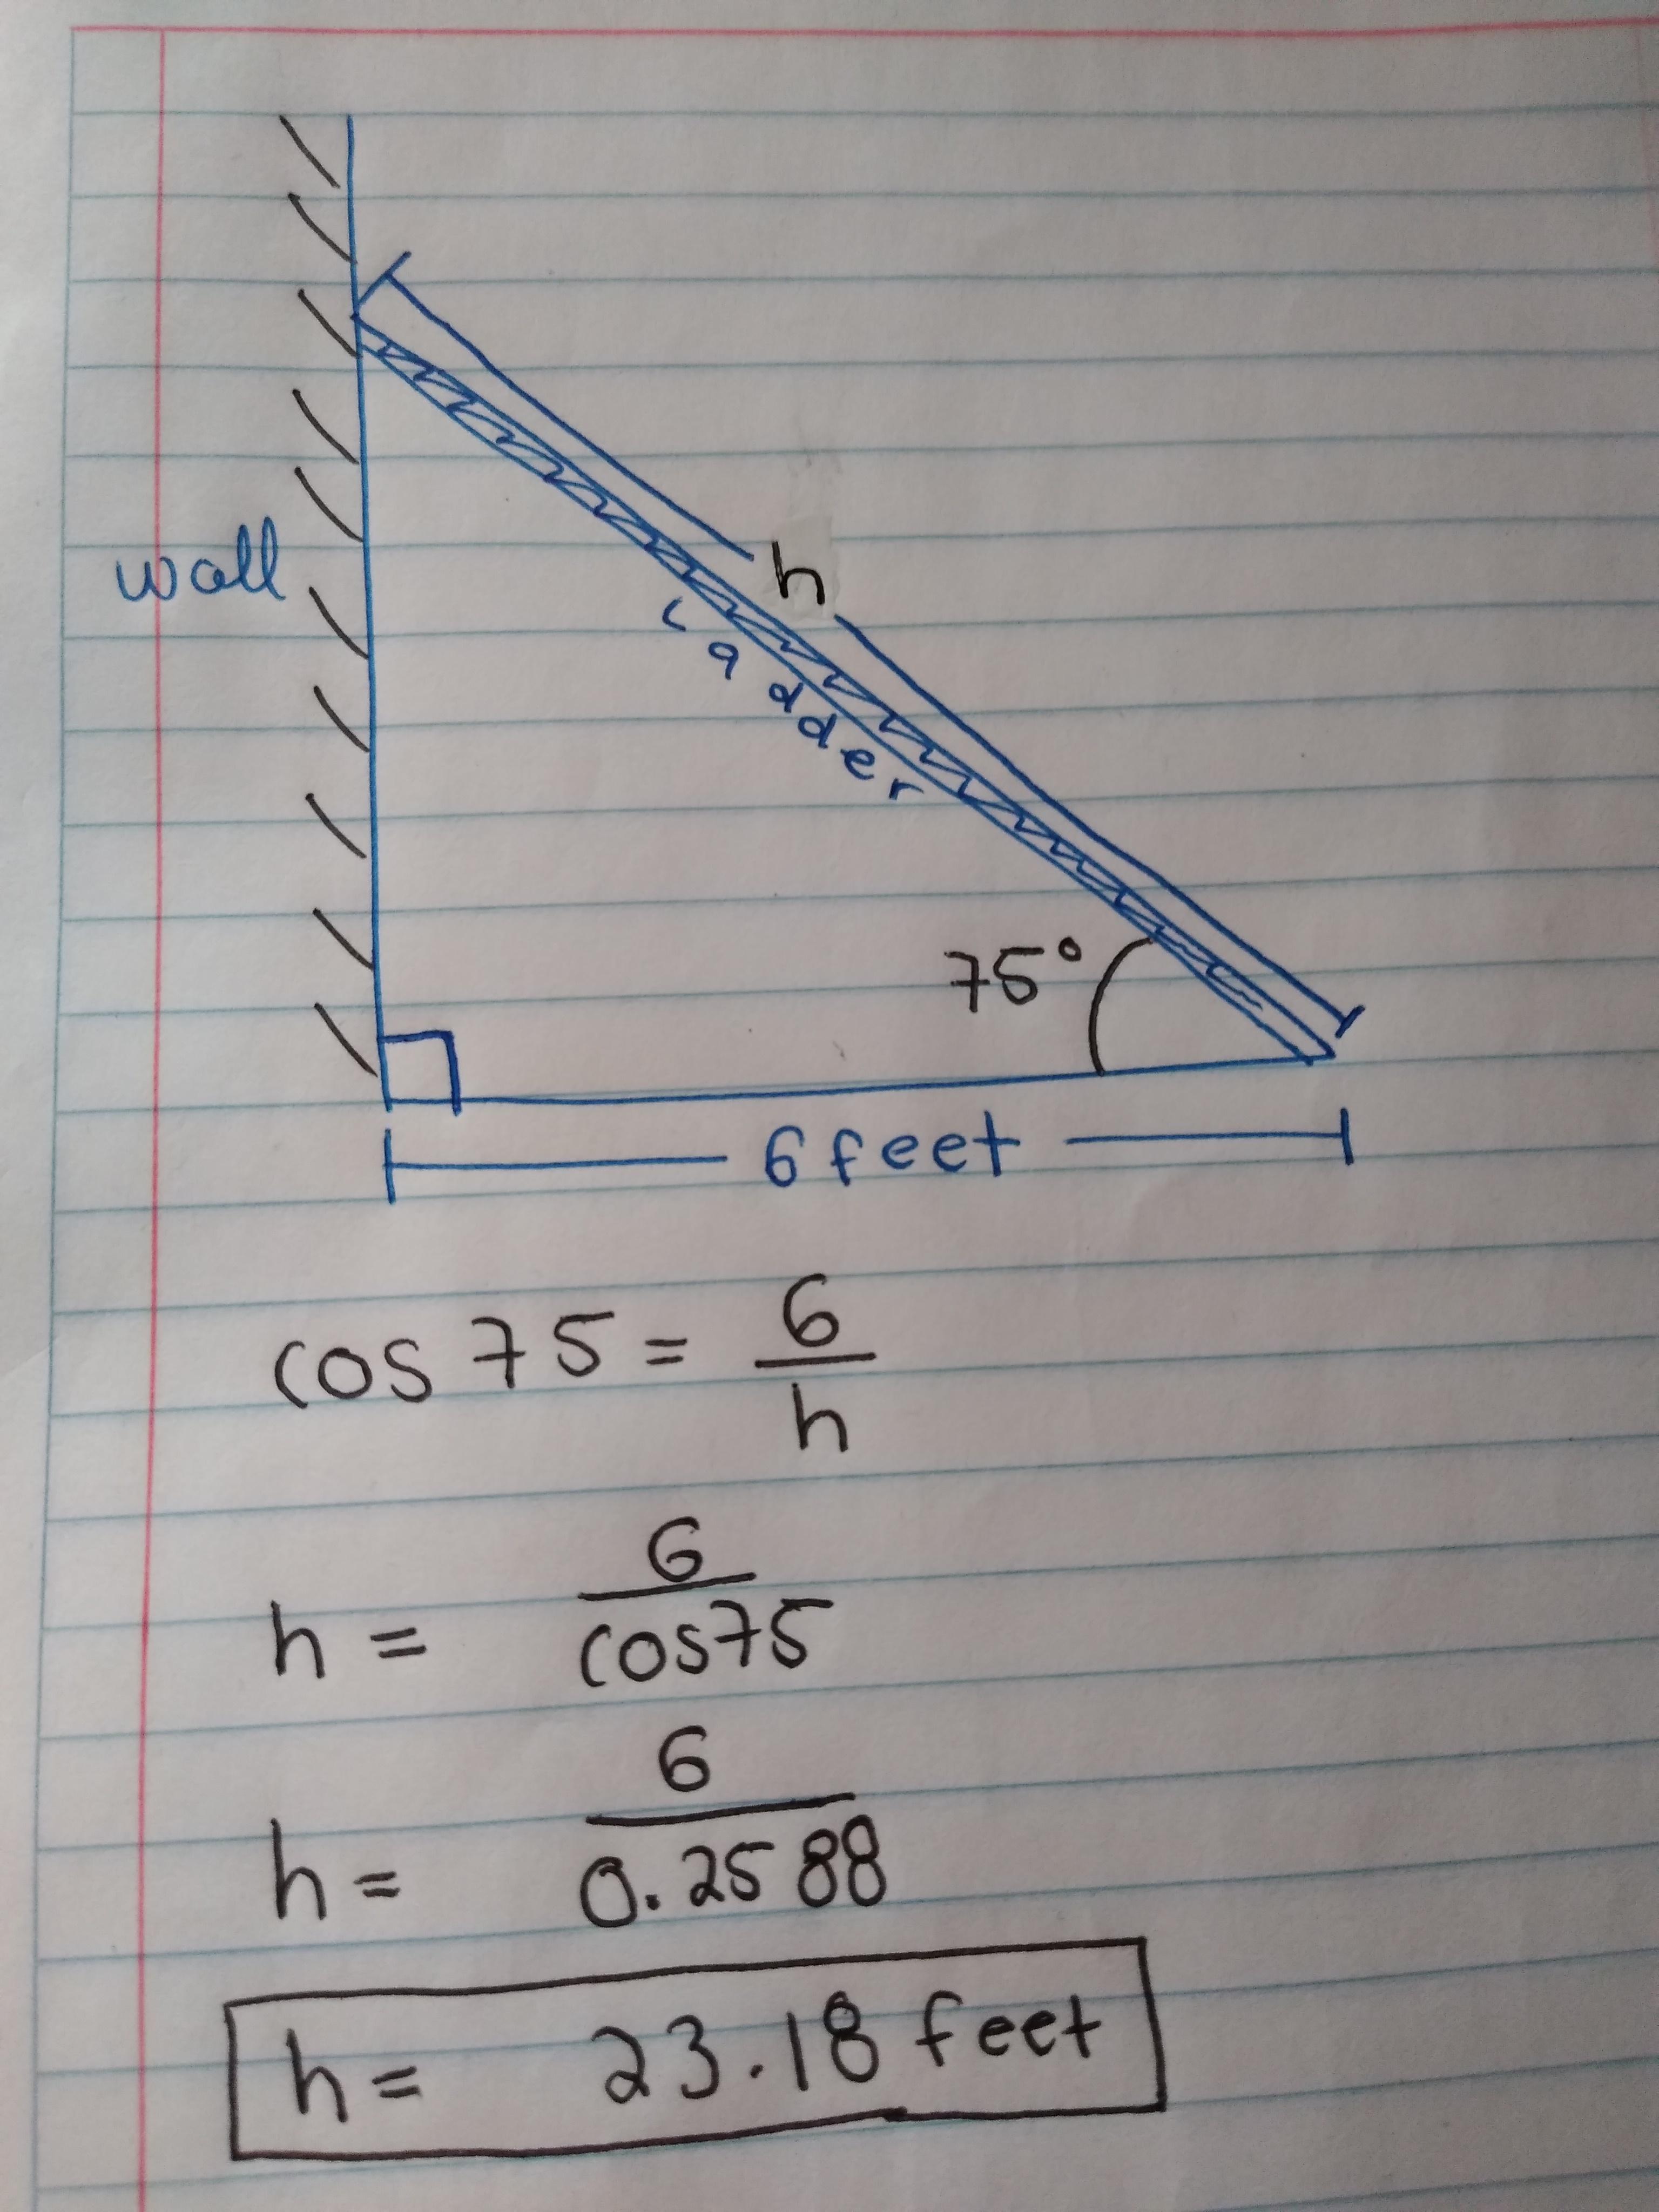 h
wall
Ladder
75°
6 feet
cos 75 = 6/h
h = 6/cos75
h = 6/0.2588
h = 23.18 feet